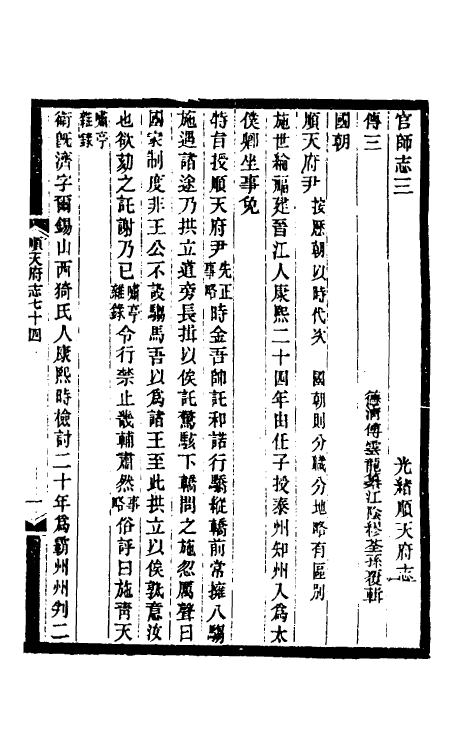 官師志三 光緒順天府志
傳三 德清傅雲龍纂江陰繆荃孫覆輯
國朝
順天府尹 按歷朝以時代次 國朝則分職分地略有區別
施世綸福建晉江人康熙二十四年由任子授泰州知州入爲太
僕卿坐事免
特旨授順天府尹先正事略時金吾帥託和諾行驕縱轎前常擁八騶
施遇諸途乃拱立道旁長揖以俟託驚駭下轎問之施忽厲聲曰
國家制度非王公不設騶馬吾以爲諸王至此拱立以俟孰意汝
也欲劾之託謝乃已嘯亭雜錄令行禁止畿輔肅然事略俗呼曰施靑天
嘯亭雜錄
衛旣濟字爾錫山西猗氏人康熙時檢討二十年爲霸州州判二
順天府志七十四
一